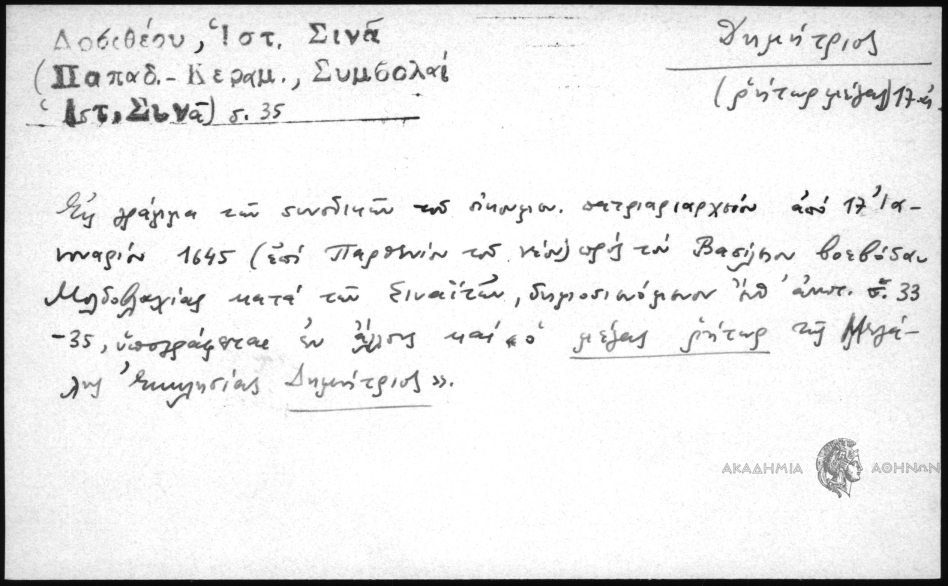 Δοσιθέου, Ἱστ. Σινᾶ
(Παπαδ.-Κεραμ., Συμβολαί
Ἱστ. Σινᾶ) σ. 35
Δημήτριος
(ῥήτωρ μέγας) 17-
Εἰς γράμμα τῶν συνοδικῶν τοῦ οἰκουμεν. πατριαρχείου ἀπό 17 Ἰα-
νουαρίου 1645 (ἐπί Παρθενίου τοῦ νέου) πρός τόν Βασίλειον βοεβόδαν
Μολδοβλαχίας κατά τῶν Σιναϊτῶν, δημοσιευόμενον ἐνθ' ἀνωτ. σ. 33
-35, ὑπογράφεται ἐν ἄλλοις καί «ὁ μέγας ῥήτωρ τῆς Μεγά-
λης Ἐκκλησίας Δημήτριος».
ΑΚΑΔΗΜΙΑ ΑΘΗΝΩΝ